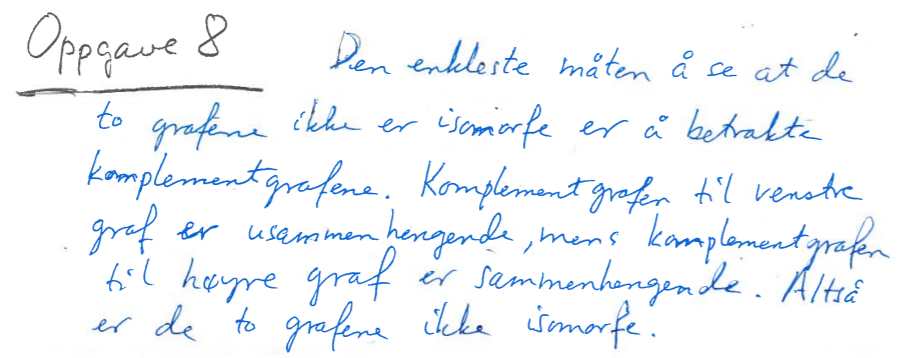 Oppgave 8 Den enkleste måten å se at de
to grafene ikke er isomorfe er å betrakte
komplementgrafene. Komplementgrafen til venstre
graf er usammenhengende, mens komplementgrafen
til høyre graf er sammenhengende. Altså
er de to grafene ikke isomorfe.